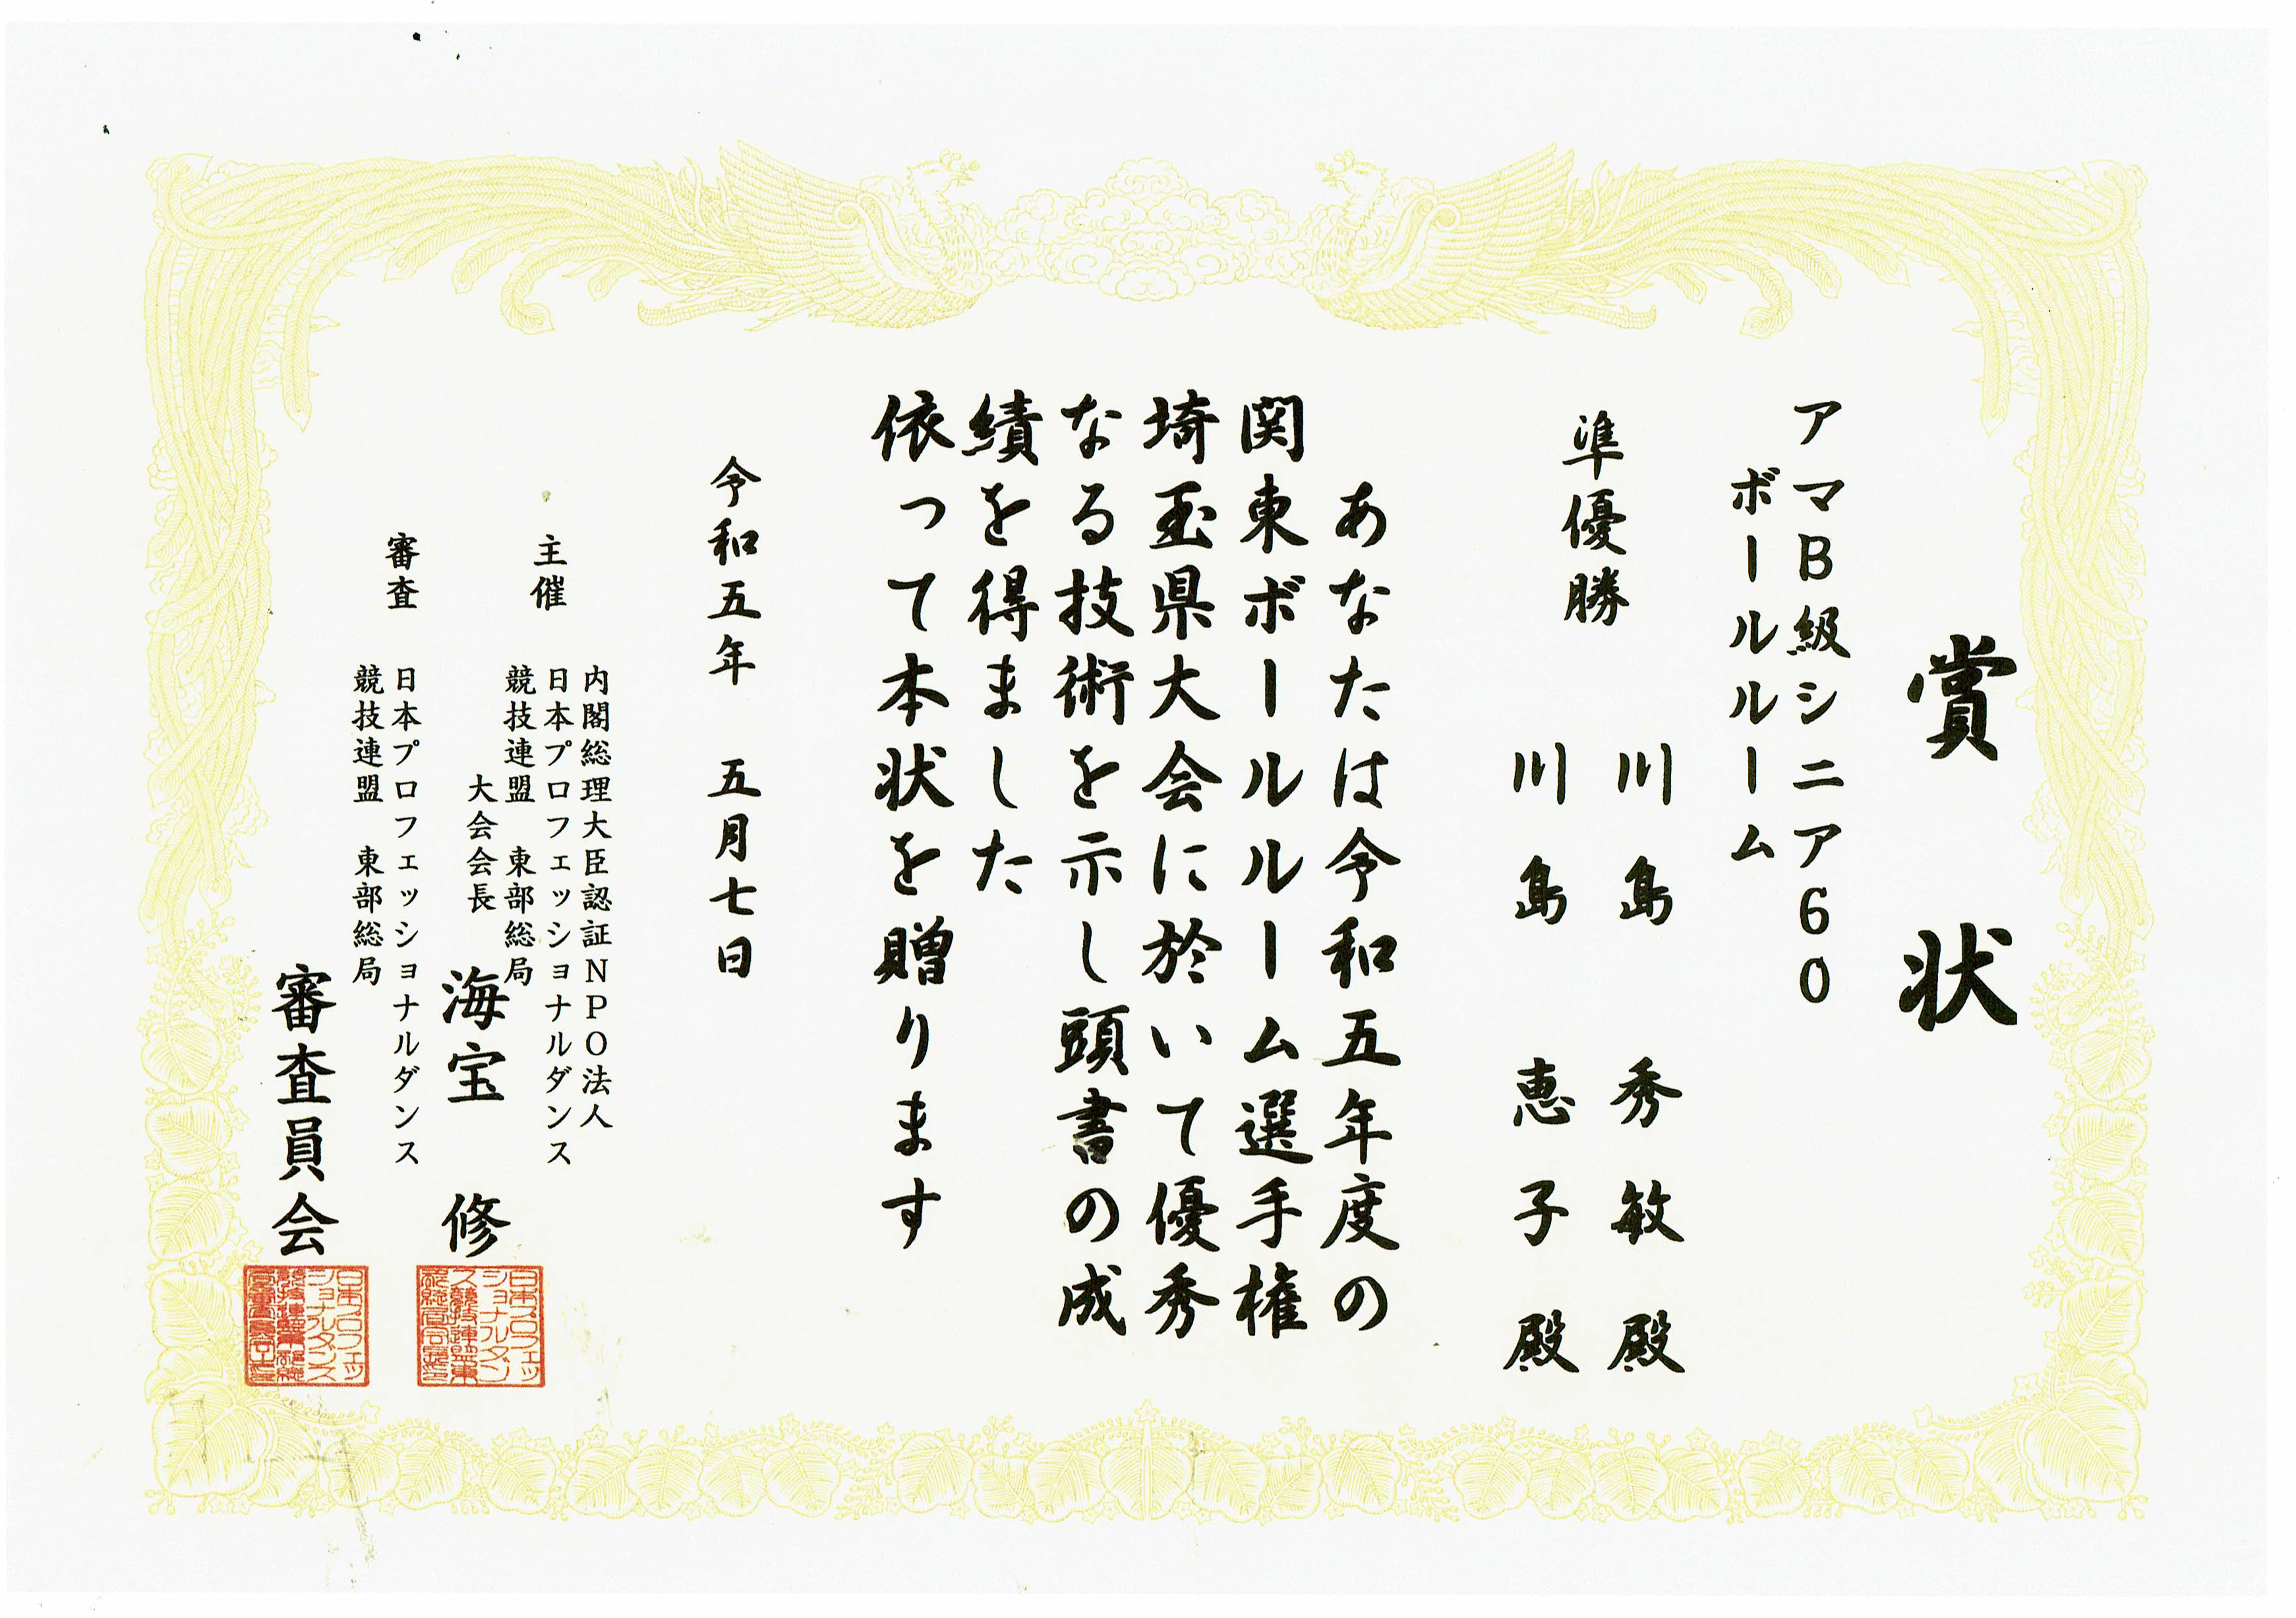 賞状
アマB級シニア60
ボールルーム
準優勝
川島 秀敏 殿
川島 恵子 殿
あなたは令和五年度の
関東ボールルーム選手権
埼玉県大会に於いて優秀
なる技術を示し頭書の成
績を得ました
依って本状を贈ります
令和五年 五月七日
主催
内閣総理大臣認証NPO法人
日本プロフェッショナルダンス
競技連盟 東部総局
大会会長 海宝 修
審査
日本プロフェッショナルダンス
競技連盟 東部総局
審査員会